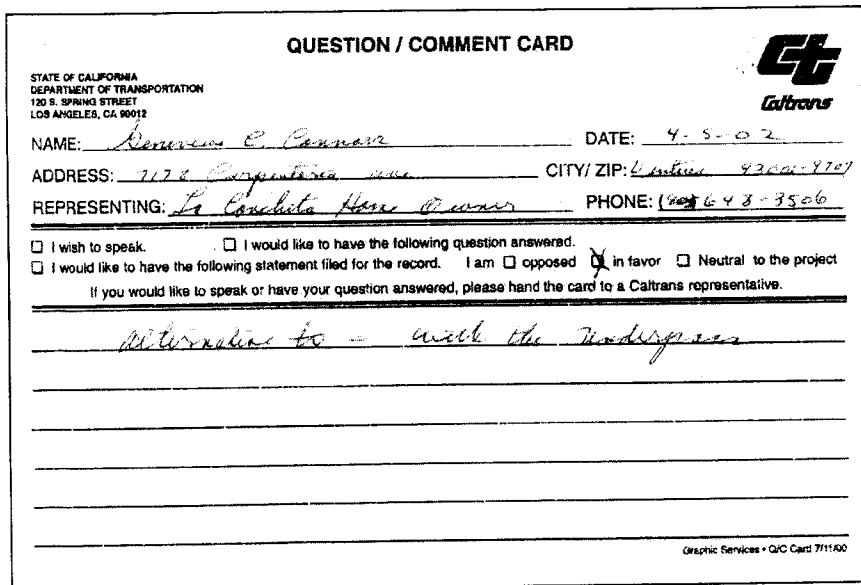 QUESTION / COMMENT CARD
Ct
Caltrans
STATE OF CALIFORNIA
DEPARTMENT OF TRANSPORTATION
120 S. SPRING STREET
LOS ANGELES, CA 90012
NAME: Genevieve C. DATE: 4-5-02
ADDRESS: 7178 Carpinteria ave CITY/ ZIP: Ventura 93001-9707
REPRESENTING: La Conchita Home Owner PHONE: (805) 648-3506
☐ I wish to speak. ☐ I would like to have the following question answered.
☐ I would like to have the following statement filed for the record. I am ☐ opposed ☒ in favor ☐ Neutral to the project
If you would like to speak or have your question answered, please hand the card to a Caltrans representative.
alternative to - with the Underpass
Graphic Services • Q/C Card 7/11/00